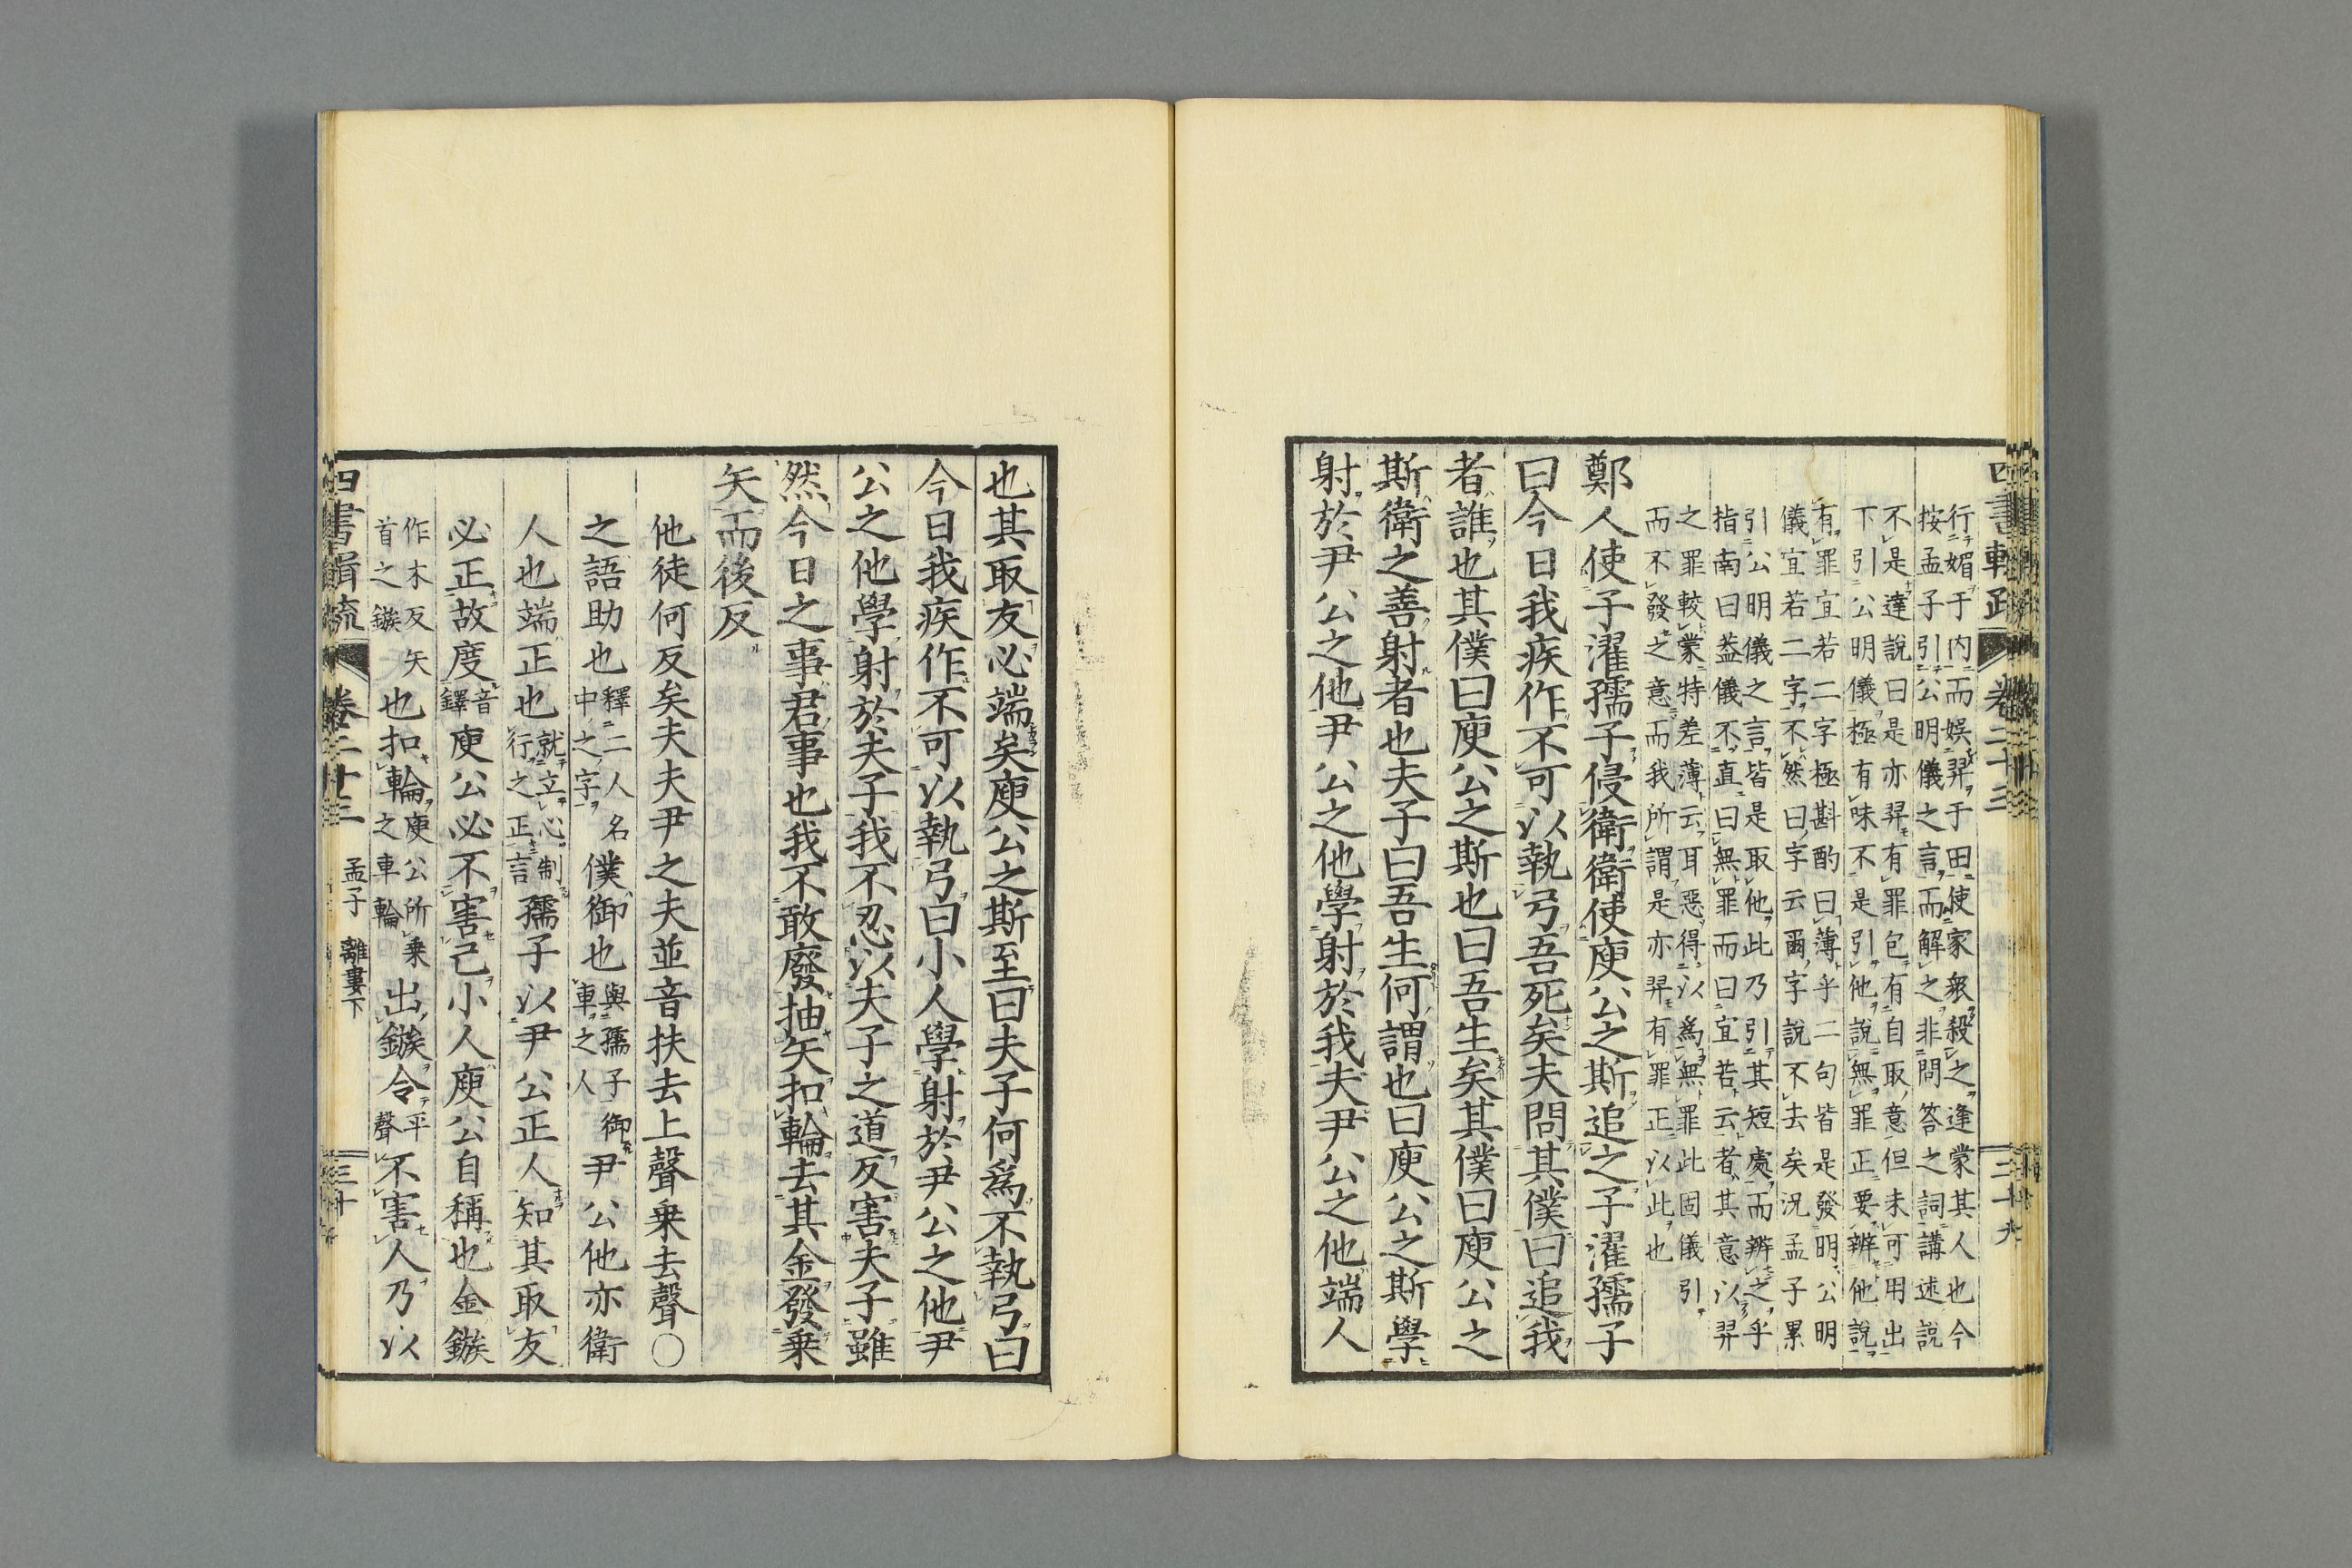 四書輯疏 卷二十三 二十九
行媚于内而娯羿于田使家衆殺之逢蒙其人也今
按孟子引公明儀之言而解之非問答之詞講述説
不是達説曰是亦羿有罪包有自取意但未可用出
下引公明儀極有味不是引他説無罪正要辨他説
有罪宜若二字極斟酌曰薄乎二句皆是發明公明
儀宜若二字不然曰字云爾字説不去矣況孟子累
引公明儀之言皆是取他此乃引其短處而辨之乎
指南曰葢儀不直曰無罪而曰宜若云者其意以羿
之罪較蒙特差薄云耳惡得以爲無罪此固儀引
而不發之意而我所謂是亦羿有罪正以此也
鄭人使子濯孺子侵衛衛使庾公之斯追之子濯孺子
曰今日我疾作不可以執弓吾死矣夫問其僕曰追我
者誰也其僕曰庾公之斯也曰吾生矣其僕曰庾公之
斯衛之善射者也夫子曰吾生何謂也曰庾公之斯學
射於尹公之他尹公之他學射於我夫尹公之他端人
也其取友必端矣庾公之斯至曰夫子何爲不執弓曰
今日我疾作不可以執弓曰小人學射於尹公之他尹
公之他學射於夫子我不忍以夫子之道反害夫子雖
然今日之事君事也我不敢廢抽矢扣輪去其金發乗
矢而後反
他徒何反矣夫夫尹之夫並音扶去上聲乗去聲〇
之語助也釋二人名中之字僕御也與孺子御車之人尹公他亦衛
人也端正也就立心制行之正言孺子以尹公正人知其取友
必正故度音鐸庾公必不害己小人庾公自稱也金鏃
作木反矢首之鏃也扣輪庾公所乗之車輪出鏃令平聲不害人乃以
四書輯疏 卷二十三 孟子 離婁下 三十